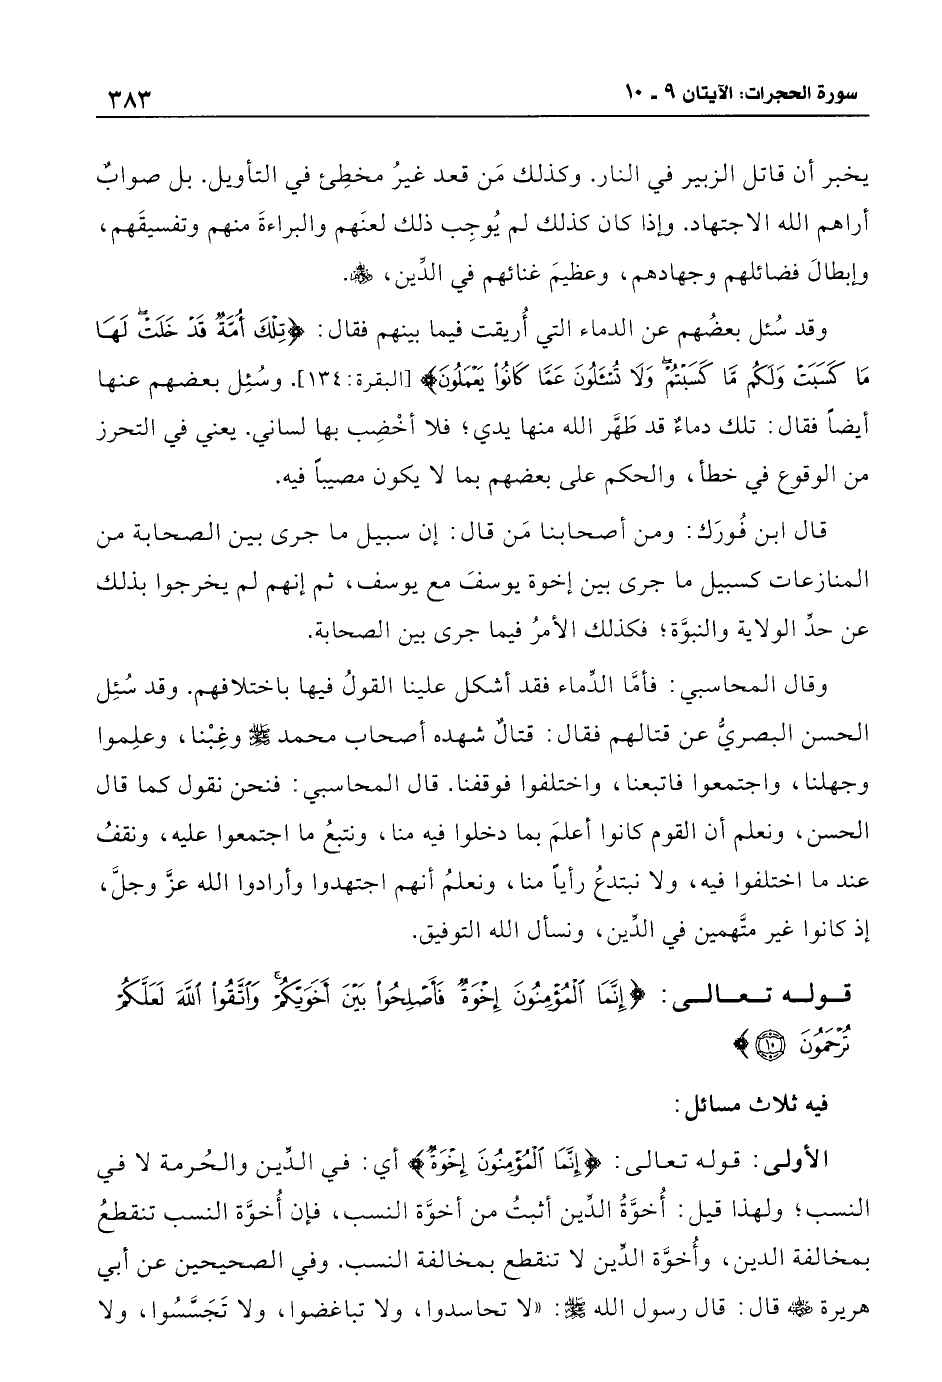 سورة الحجرات: الآيتان ٩ - ١٠
٣٨٣
يخبر أن قاتل الزبير في النار. وكذلك مَن قعد غيرُ مخطِئ في التأويل. بل صوابٌ
أراهم الله الاجتهاد. وإذا كان كذلك لم يُوجِب ذلك لعنَهم والبراءةَ منهم وتفسيقَهم،
وإبطالَ فضائلهم وجهادهم، وعظيمَ غنائهم في الدِّين، ﷺ.
وقد سُئل بعضُهم عن الدماء التي أُريقت فيما بينهم فقال: ﴿تِلْكَ أُمَّةٌ قَدْ خَلَتْ لَهَا
مَا كَسَبَتْ وَلَكُم مَّا كَسَبْتُمْ وَلَا تُسْـَٔلُونَ عَمَّا كَانُوا۟ يَعْمَلُونَ﴾ [البقرة: ١٣٤]. وسُئِل بعضهم عنها
أيضاً فقال: تلك دماءٌ قد طَهَّر الله منها يدي؛ فلا أخْضِب بها لساني. يعني في التحرز
من الوقوع في خطأ، والحكم على بعضهم بما لا يكون مصيباً فيه.
قال ابن فُورَك: ومن أصحابنا مَن قال: إن سبيل ما جرى بين الصحابة من
المنازعات كسبيل ما جرى بين إخوة يوسفَ مع يوسف، ثم إنهم لم يخرجوا بذلك
عن حدِّ الولاية والنبوَّة؛ فكذلك الأمرُ فيما جرى بين الصحابة.
وقال المحاسبي: فأمَّا الدِّماء فقد أشكل علينا القولُ فيها باختلافهم. وقد سُئِل
الحسن البصريُّ عن قتالهم فقال: قتالٌ شهده أصحاب محمد ﷺ وغِبْنا، وعلِموا
وجهلنا، واجتمعوا فاتبعنا، واختلفوا فوقفنا. قال المحاسبي: فنحن نقول كما قال
الحسن، ونعلم أن القوم كانوا أعلمَ بما دخلوا فيه منا، ونتبعُ ما اجتمعوا عليه، ونقفُ
عند ما اختلفوا فيه، ولا نبتدعُ رأياً منا، ونعلمُ أنهم اجتهدوا وأرادوا الله عزَّ وجلَّ،
إذ كانوا غير متَّهمين في الدِّين، ونسأل الله التوفيق.
قوله تعالى: ﴿إِنَّمَا ٱلْمُؤْمِنُونَ إِخْوَةٌ فَأَصْلِحُوا۟ بَيْنَ أَخَوَيْكُمْ ۚ وَٱتَّقُوا۟ ٱللَّهَ لَعَلَّكُمْ
تُرْحَمُونَ ١٠﴾
فيه ثلاث مسائل:
الأولى: قوله تعالى: ﴿إِنَّمَا ٱلْمُؤْمِنُونَ إِخْوَةٌ﴾ أي: في الدِّين والحُرمة لا في
النسب؛ ولهذا قيل: أُخوَّةُ الدِّين أثبتُ من أخوَّة النسب، فإن أُخوَّة النسب تنقطعُ
بمخالفة الدين، وأُخوَّة الدِّين لا تنقطع بمخالفة النسب. وفي الصحيحين عن أبي
هريرة ﷺ قال: قال رسول الله ﷺ: «لا تحاسدوا، ولا تباغضوا، ولا تَجَسَّسُوا، ولا